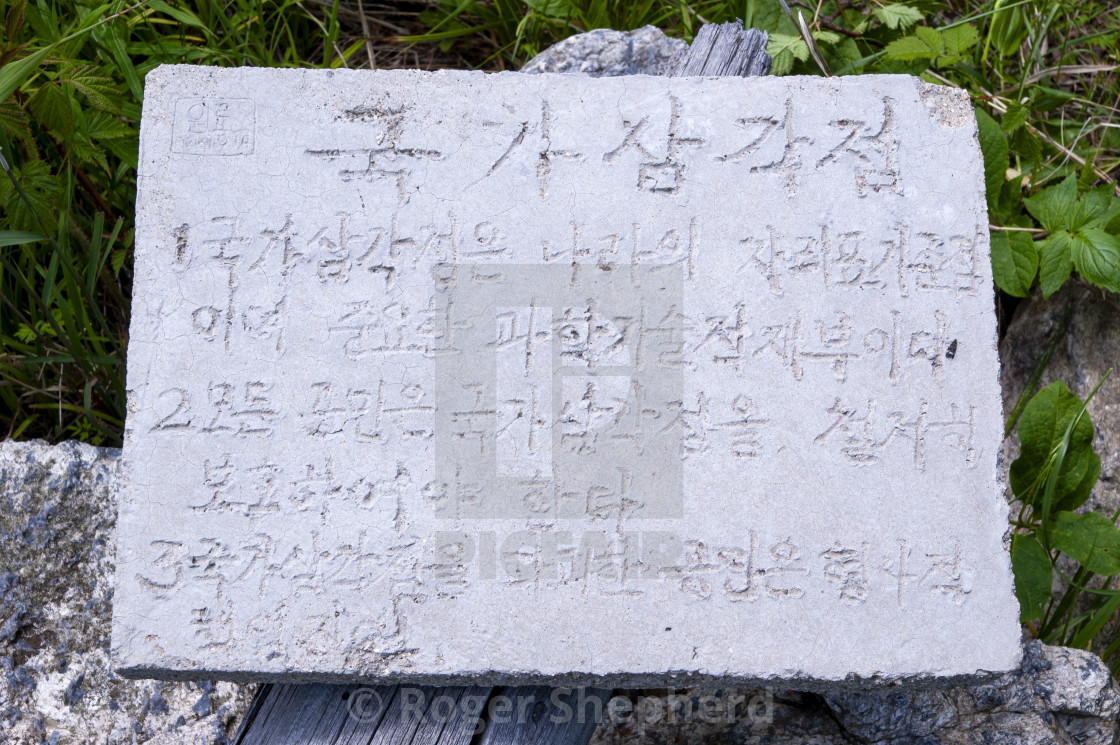 국가삼각점
1 국가삼각점은 나라의 자리표기준점
이며 중요한 과학기술적재부이다
2 모든 공민은 국가삼각점을 철저히
보호하여야 한다
3 국가삼각점을 공민은 형사적
PICFAIR
© Roger Shepherd